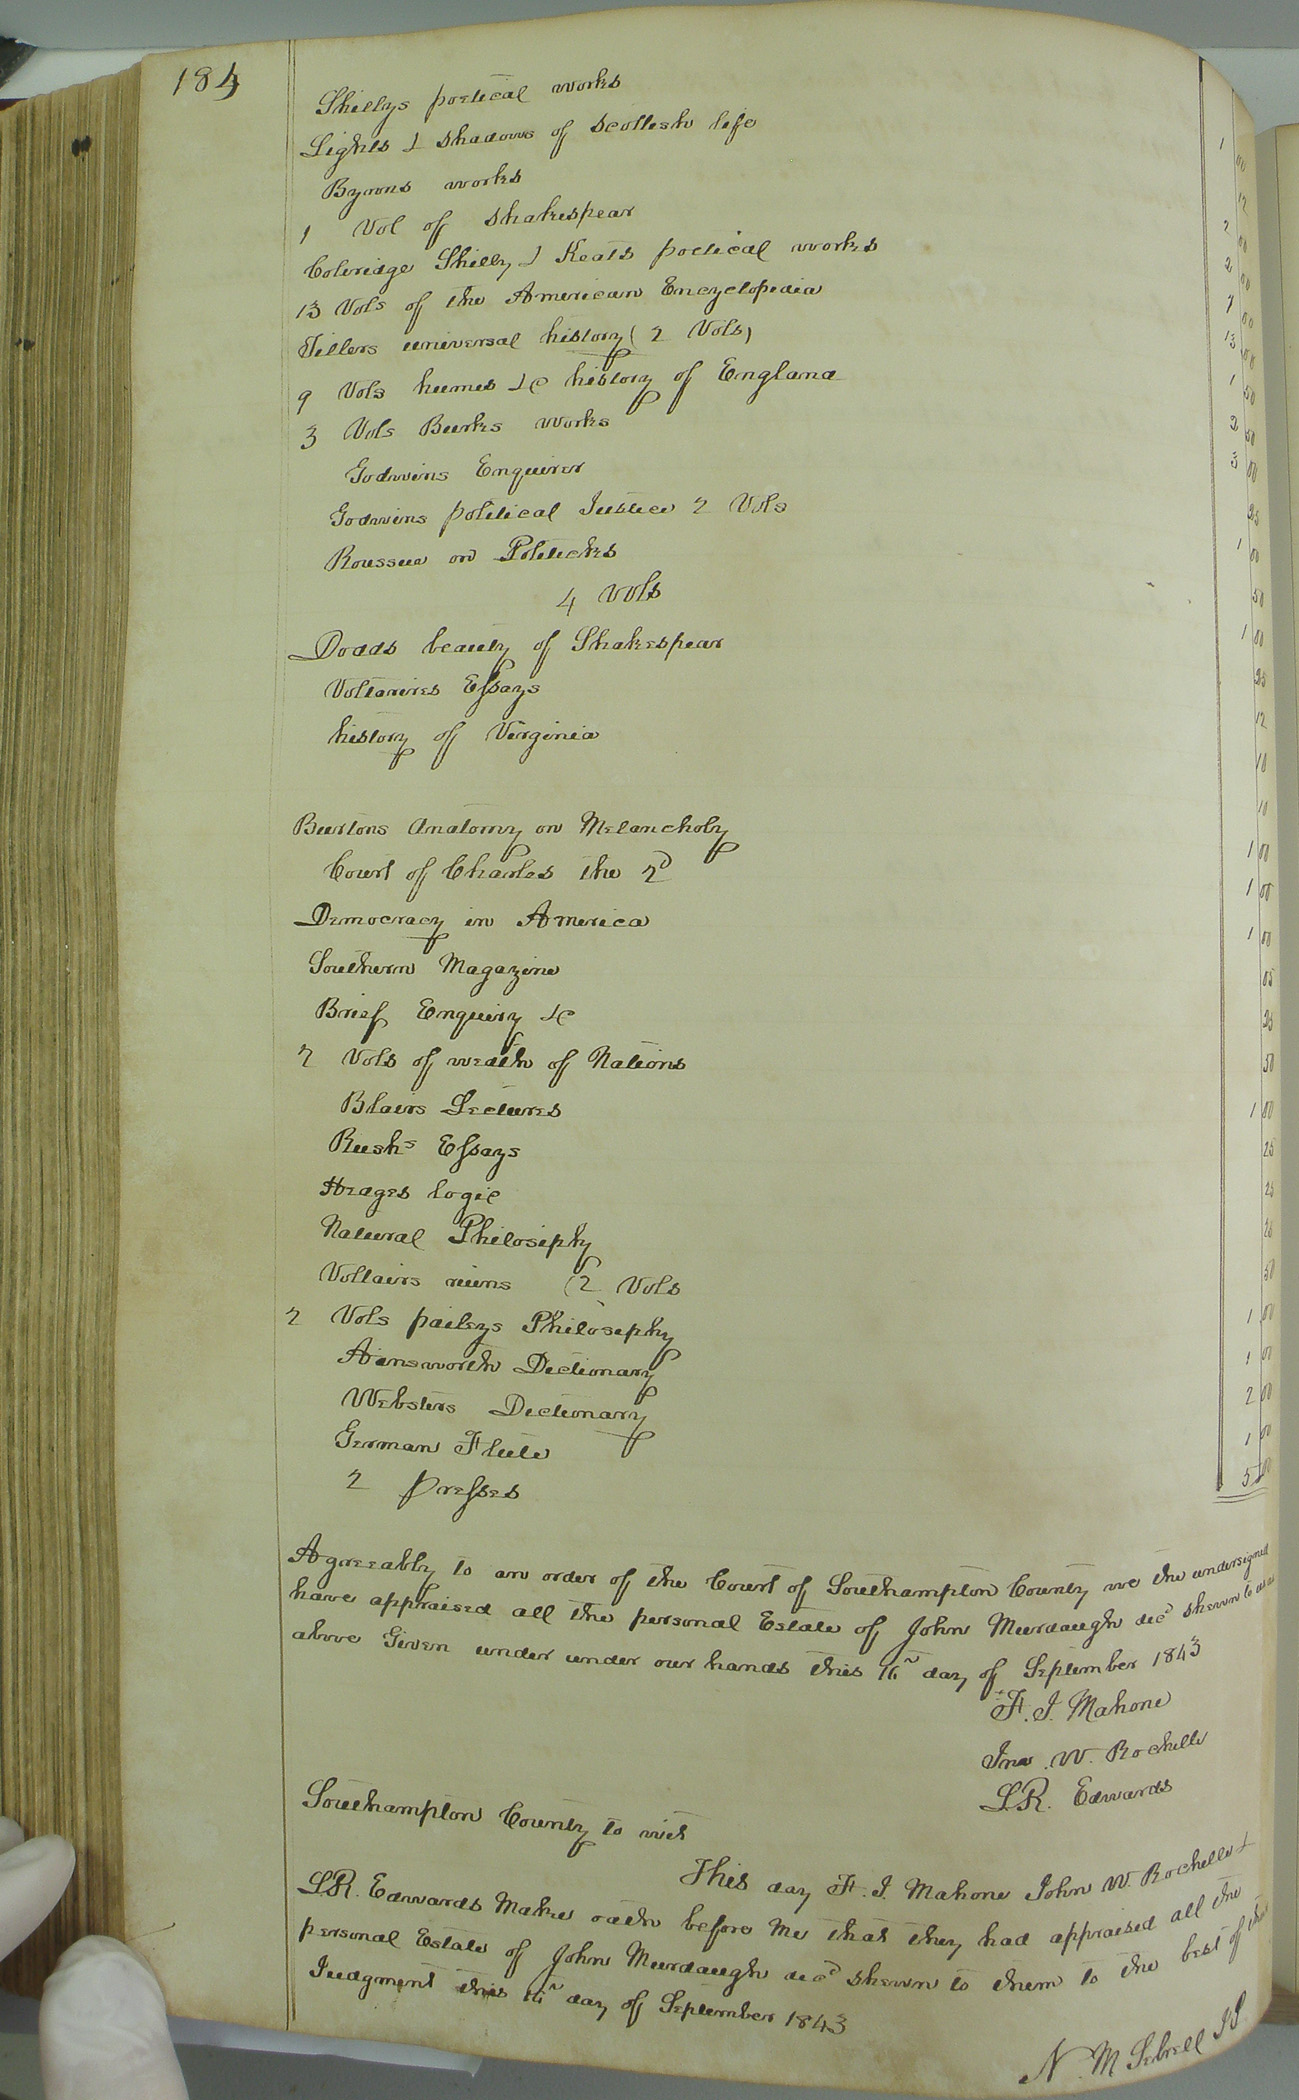 184
Shillys poetical works 1 00
Lights & Shadows of Scottish life 12
Byrons works 2 00
1 Vol of Shakespear 2 00
Coleridge Shilly & Keats poetical works 00
13 Vols of the American Encyclopedia 13 00
Tillers universal history (2 Vols) 1 50
9 Vols humes &c history of England 2 50
3 Vols Burks Works 3 00
Godwins Enquirer 25
Godwins political Justice 2 Vols 1 00
Roussua on Politicks 50
4 Vols 1 00
Dodds beauty of Shakespear 25
Voltarires Essays 12
history of Virginia 10
10
Burtons Anatomy on Melancholy 1 00
Court of Charles the 2d 1 00
Democracy in America 1 00
Southern Magazine 05
Brief Enquiry &c 25
2 Vols of wealth of Nations 50
Blairs Lectures 1 00
Rushs Essays 25
Hedges logic 25
Natural Philosiphy
Voltairs ruins (2 Vols 50
2 Vols paileys Philosiphy 1 00
Ainsworth Dictionary 1 00
Websters Dictionary 2 00
German Flute 1 00
2 Presses 5 00
Agreeably to an order of the Court of Southampton County we the undersigned
have appraised all the personal Estate of John Murdaugh decd shewn to us as
above Given under under our hands this day of September 1843
F. J. Mahone
Jno. W. Rochelle
L.R. Edwards
Southampton County to wit
This day F. J. Mahone John W. Rochelle &
L.R. Edwards Make oath before Me that they had appraised all the
personal Estate of John Murdaugh decd shewn to them to the best of their
Judgment this day of September 1843
N. M Sebrell JP.